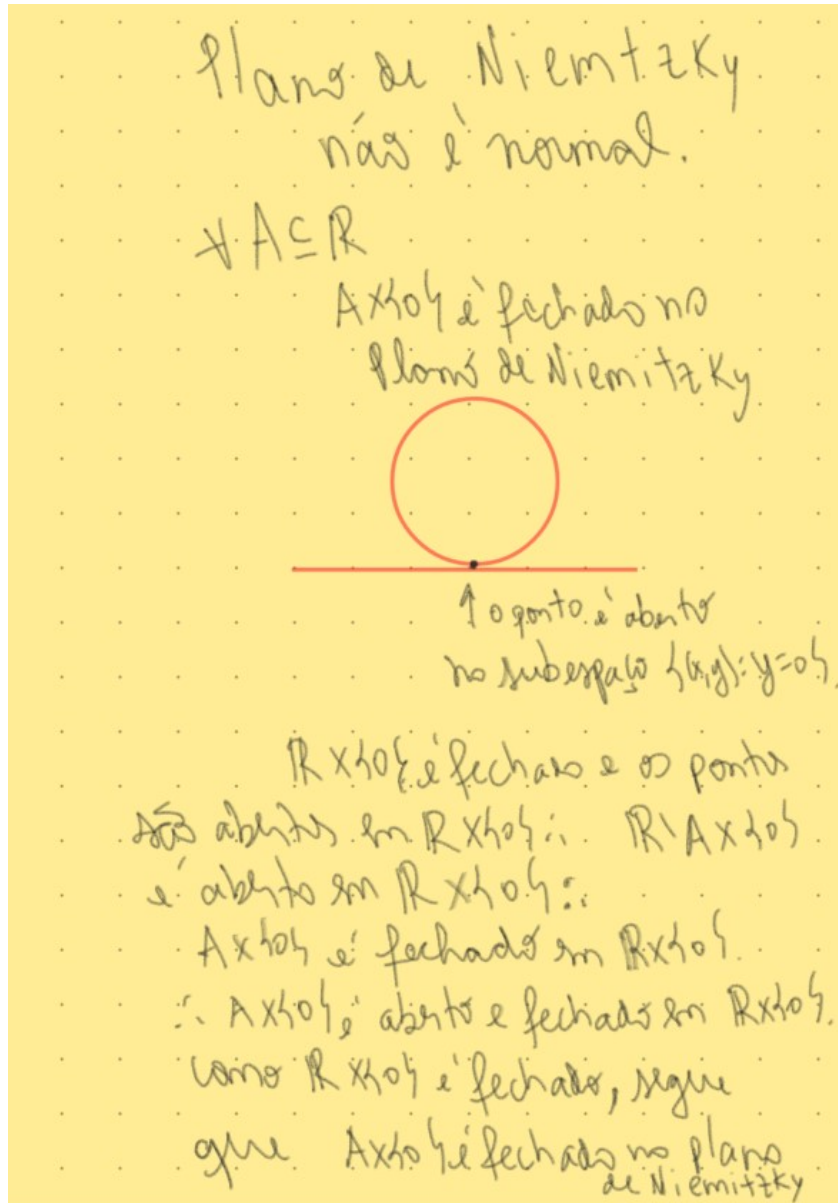 Plano de Niemtzky
não é normal.
∀ A ⊆ R
A×{0} é fechado no
Plano de Niemitzky
↑ o ponto é aberto
no subespaço {(x,y): y=0}.
R×{0} é fechado e os pontos
são abertos em R×{0} ∴ R\A×{0}
é aberto em R×{0} ∴
A×{0} é fechado em R×{0}.
∴ A×{0} é aberto e fechado em R×{0}.
como R×{0} é fechado, segue
que A×{0} é fechado no plano
de Niemitzky